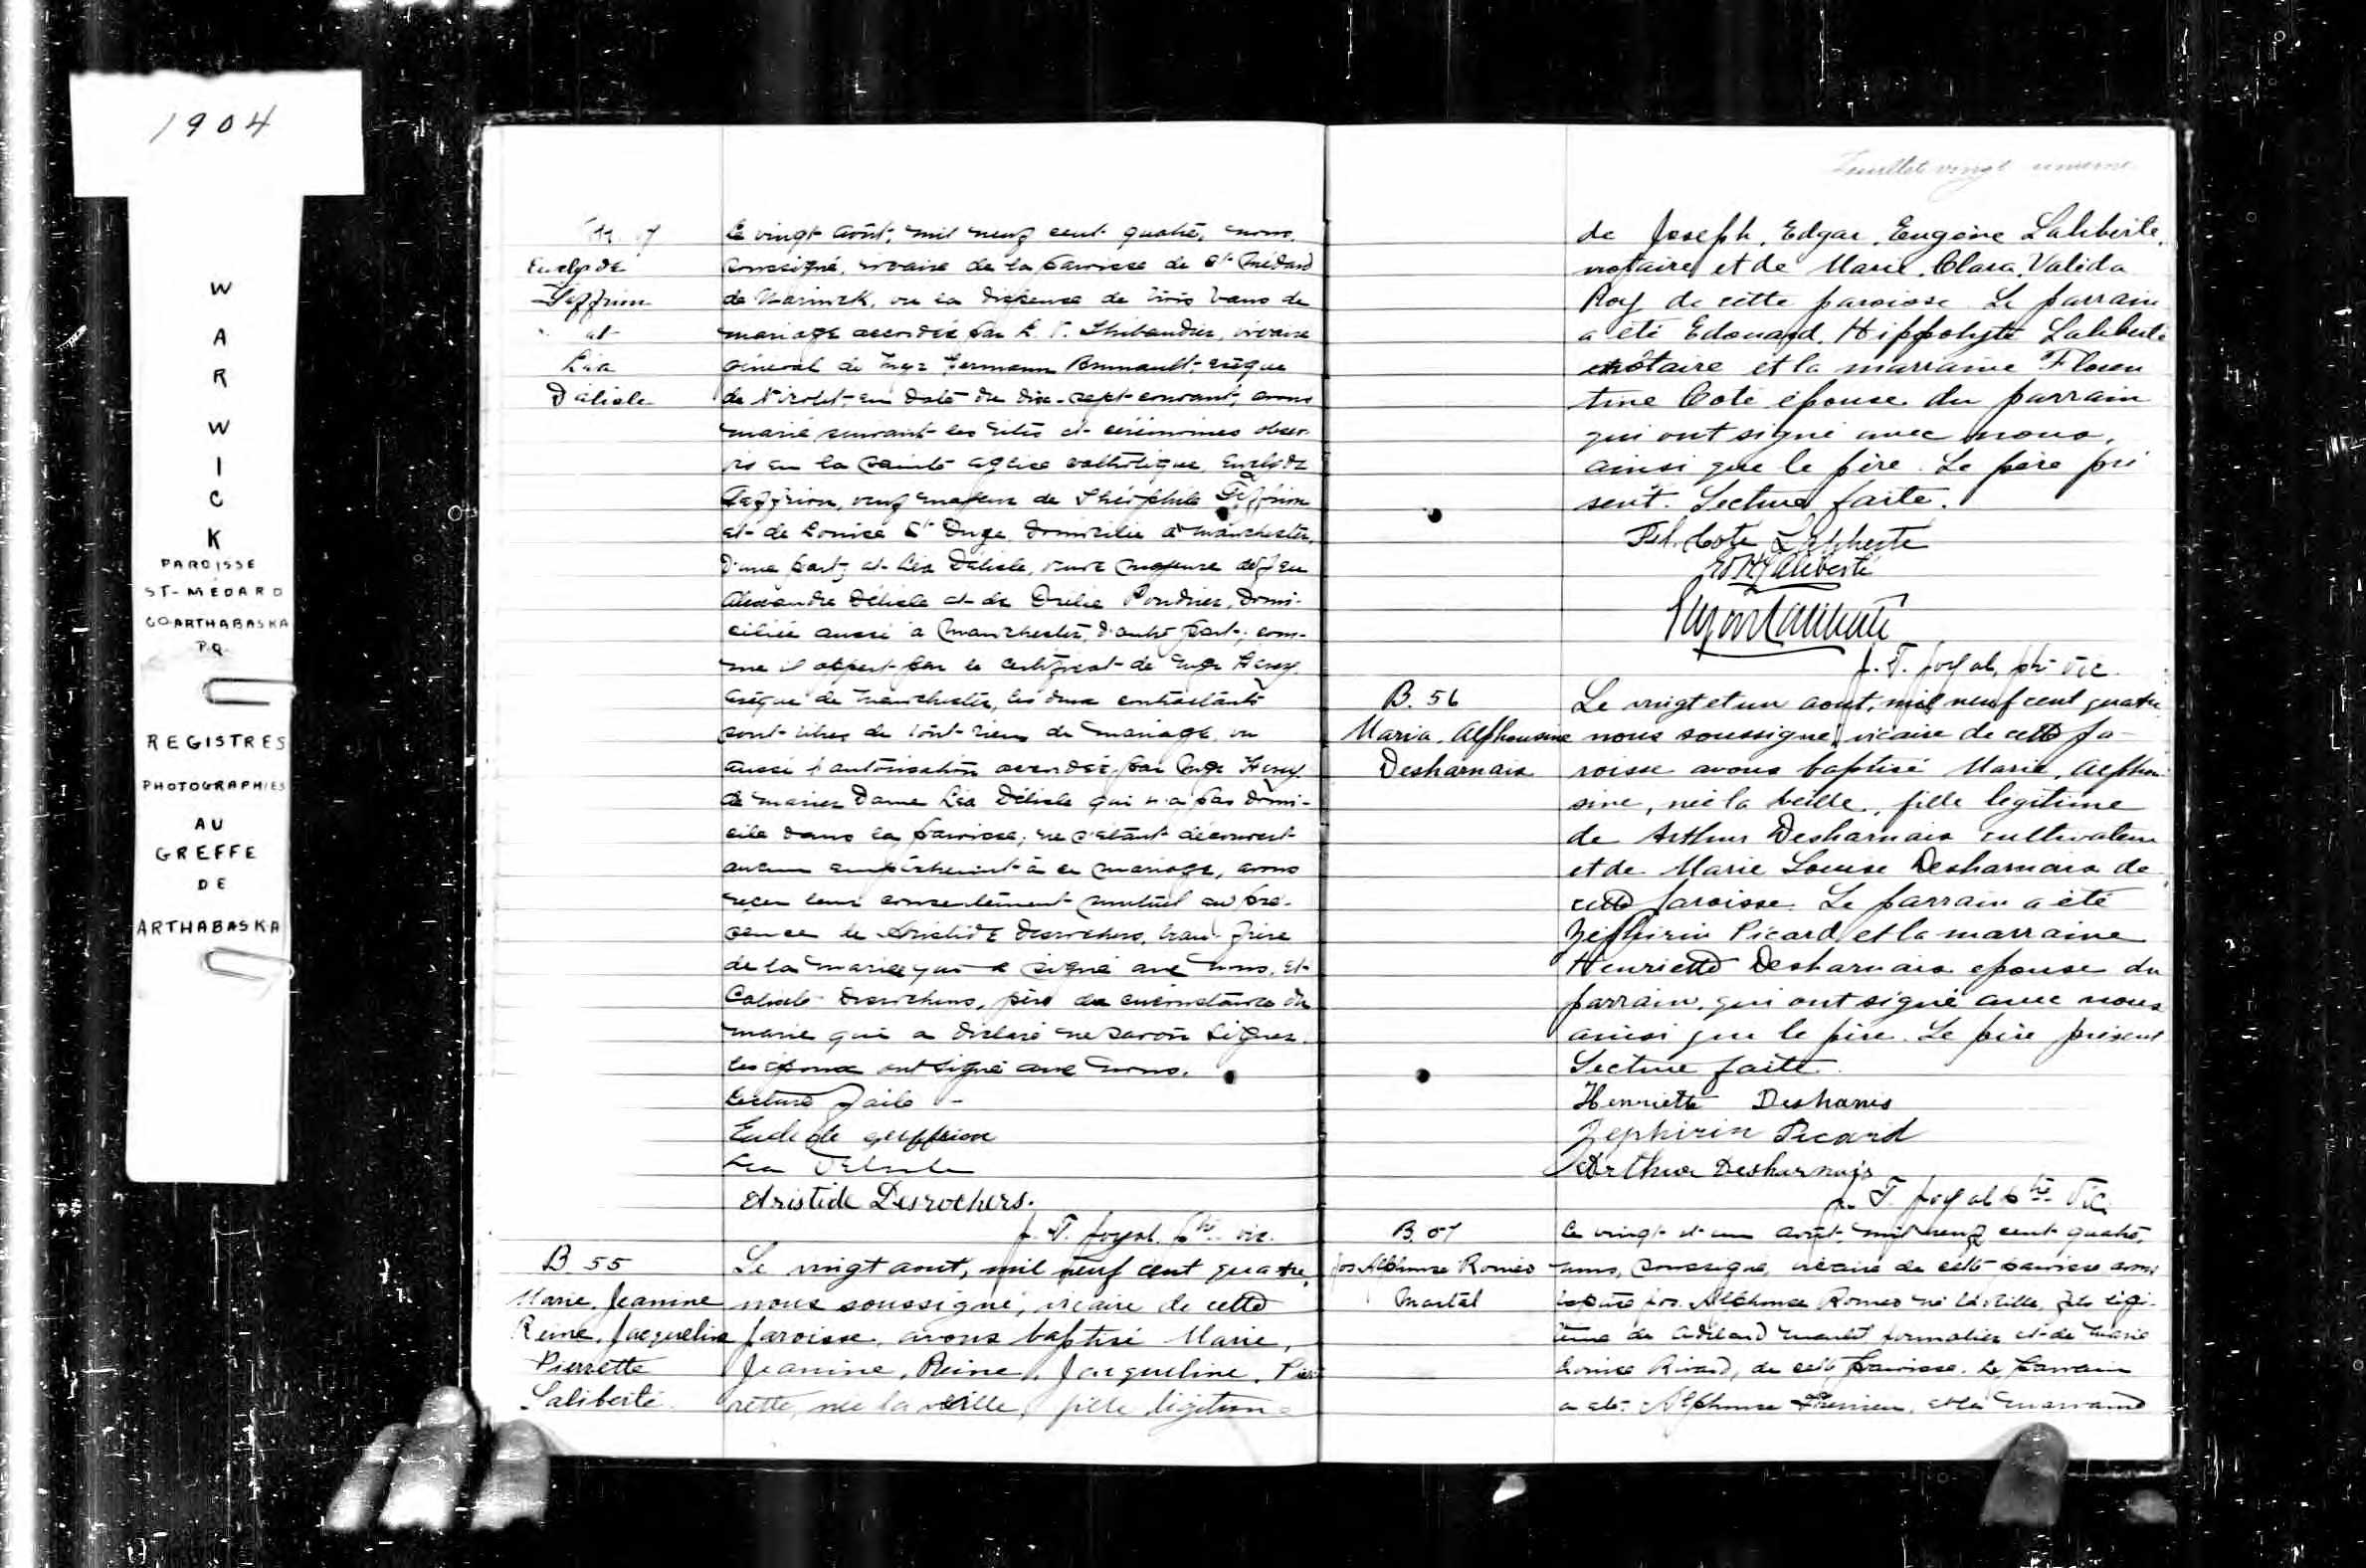 1904
WARWICK
PAROISSE
ST-MÉDARD
CO ARTHABASKA
P.Q.
REGISTRES
PHOTOGRAPHIES
AU
GREFFE
DE
ARTHABASKA
Euclyde
Geffrion
et
Léa
Délisle
Le vingt août, mil neuf cent quatre, nous,
soussigné, vicaire de la paroisse de St Médard
de Warwick, vu la dispense de trois bans de
mariage accordée par L. V. Thibaudier, vicaire
général de Mgr Hermann Brunault, évêque
de Nicolet, en date du dix-sept courant, avons
marié suivant les rites et cérémonies obser-
vés en la sainte église catholique, Euclyde
Geffrion, veuf majeur de Théophile Geffrion
et de Louise St Onge, domicilié à Manchester,
d'une part, et Léa Délisle, veuve majeure de feu
Alexandre Délisle et de Poudrier, domi-
ciliée aussi à Manchester, d'autre part; com-
me il appert par le certificat de Mgr
évêque de Manchester, les deux contractants
sont libres de tout lien de mariage, vu
aussi l'autorisation accordée par Mgr
de marier Dame Léa Délisle qui n'a pas domi-
cile dans la paroisse; ne s'étant découvert
aucun empêchement à ce mariage, avons
reçu leur consentement mutuel en pré-
sence de Aristide Desrochers, beau-frère
de la mariée qui a signé avec nous, et
Calixte Desrochers, père de circonstance du
marié qui a déclaré ne savoir signer.
Les époux ont signé avec nous.
Lecture faite -
Euclide geuffrion
Lea Delisle
Aristide Desrochers.
J. T. Joyal, ptre vic.
B. 55
Marie, Jeanine
Reine, Jacqueline
Pierrette
Laliberté
Le vingt aout, mil neuf cent quatre,
nous soussigné, vicaire de cette
paroisse, avons baptisé Marie,
Jeanine, Reine, Jacqueline, Pier
rette, née la veille, fille légitime
Feuillet vingt unième
de Joseph, Edgar, Eugène Laliberté,
notaire et de Marie, Clara, Valéda
Roy de cette paroisse. Le parrain
a été Edouard, Hippolyte Laliberté
notaire et la marraine Floren
tine Coté épouse du parrain
qui ont signé avec nous,
ainsi que le père. Le père pré
sent. Lecture faite.
Fl. Cote Laliberte
Ed H Laliberté
J. T. Joyal, ptr vic.
B. 56
Maria, Alphonsine
Desharnais
Le vingt et un aout, mil neuf cent quatre
nous soussigné, vicaire de cette pa-
roisse avons baptisé Marie, Alphon
sine, née la veille, fille légitime
de Arthur Desharnais cultivateur
et de Marie Louise Desharnais de
cette paroisse. Le parrain a été
Zéphirin Picard et la marraine
Henriette Desharnais épouse du
parrain, qui ont signé avec nous
ainsi que le père. Le père présent
Lecture faite.
Henriette Desharnis
Zephirin Picard
Arthur Desharnais
J. T. Joyal ptre Vic.
B. 57
Jos Alphonse Roméo
Martel
Le vingt et un août, mil neuf cent quatre,
nous, soussigné, vicaire de cette paroisse avons
baptisé Jos. Alphonse Romeo né la veille, fils légi-
time de Adélard Martel fromager et de Marie
Louise Rivard, de cette paroisse. Le parrain
a été Alphonse et la marraine